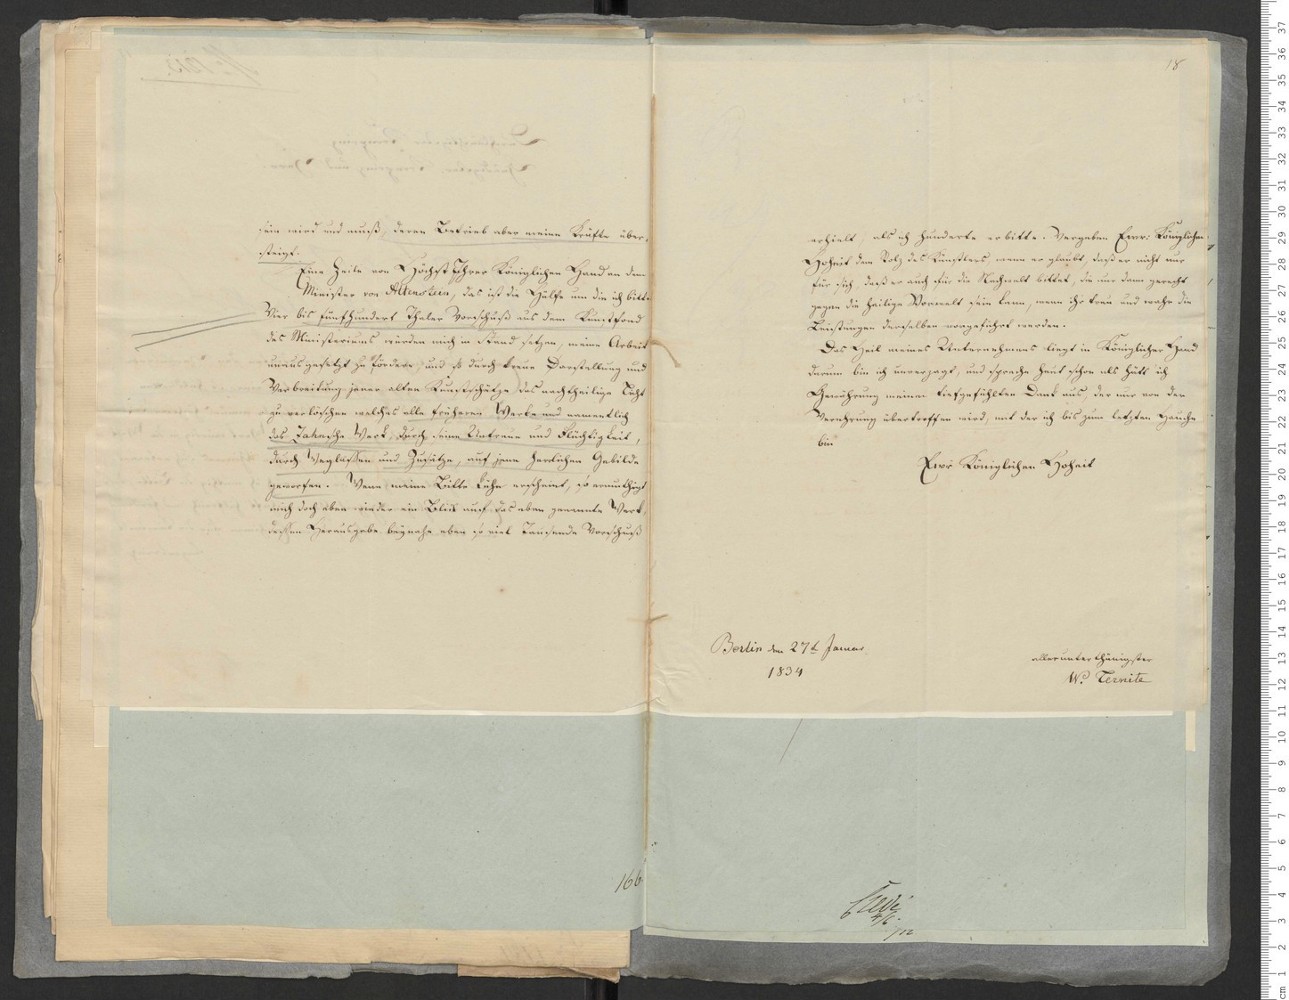 sein wird und muß, deren Betrieb aber meine Kräfte über-
steigt.
Eine Zeile von Höchst Ihrer Königlichen Hand an den
Minister von Altenstein, das ist die Hülfe um die ich bitte
Vier bis fünfhundert Thaler Vorschuß aus dem Kunstfond
des Ministeriums würden mich in Stand setzen, meine Arbeit
unausgesetzt zu fördern, und so durch treue Darstellung und
Verbreitung jener alten Kunstschätze das nachtheilige Licht
zu verlöschen welches alle früheren Werke und namentlich
das Zahnsche Werk, durch seine Untreue und Flüchtigkeit,
durch Weglassen und Zusätze, auf jene herlichen Gebilde
geworfen. Wenn meine Bitte kühn erscheint, so ermuthigt
mich doch eben wieder ein Blick auf das eben genannte Werk,
dessen Herausgabe beynahe eben so viel Tausende Vorschuß
18
erhielt, als ich Hunderte erbitte. Vergeben Ewr: Königliche
Hoheit den Stolz des Künstlers, wenn er glaubt, daß er nicht nur
für sich, daß er auch für die Nachwelt bittet, die nur dann gerecht
gegen die heilige Vorwelt sein kann, wenn ihr treu und wahr die
Leistungen derselben vorgeführt werden.
Das Heil meines Unternehmens liegt in Königlicher Hand
darum bin ich unverzagt, und spreche heut schon als hätt ich
Gewährung meinen tiefgefühlten Dank aus, der nur von der
Verehrung übertroffen wird, mit der ich bis zum letzten Hauche
bin
Ewr Königlichen Hoheit
Berlin den 27t Januar
1834
allerunterthänigster
W. Ternite
166